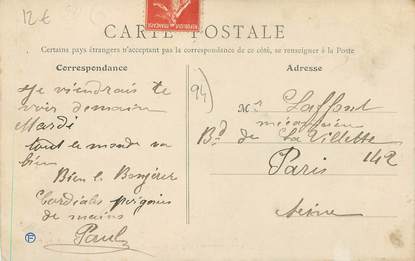 12€
CARTE POSTALE
Certains pays étrangers n'acceptant pas la correspondance de ce côté, se renseigner à la Poste
Correspondance
Adresse
Je viendrais te
voir demain
Mardi
tout le monde va
bien
Bien le Bonjour
Cordiales poignées
de mains
Paul
94)
Mr. Laffont
mécanicien
Bd de La Villette
142
Paris
Seine